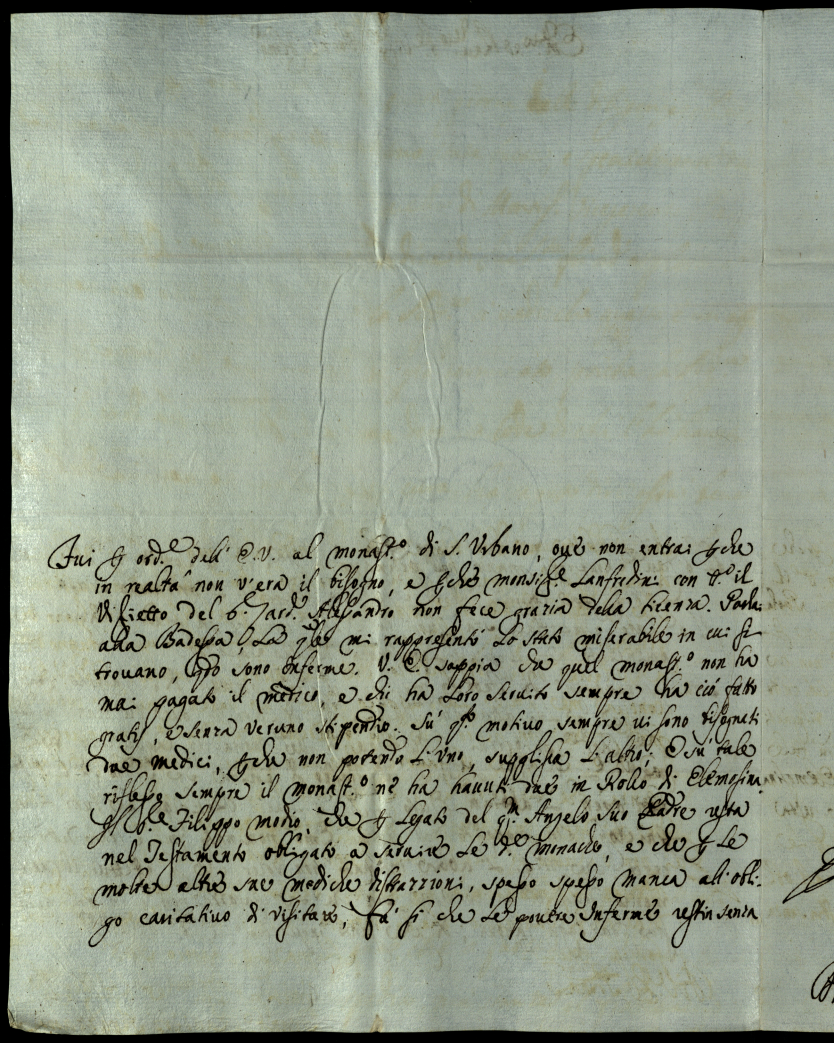 Fui p ord.e dell' E.V. al monast.o di S. Urbano, ove non entrai pche
in realtà non v'era il bisogno, e pche monsig.re Lanfredini con tt.o il
del S. Card. Alessandro non fece grazia della licenza. Parlai
alla Badessa, La qle mi rappresentò Lo stato miserabile in cui si
trovano, qdo sono inferme. V. E. sappia che quel monast.o non ha
mai pagato il medico, e chi ha Loro servito sempre ha ciò fatto
gratis, e senza veruno stipendio. Sù qsto motivo, sempre vi sono bisognati
due medici, pche non potendo L'uno, supplisca L'altro; E sù tale
riflesso sempre il monast.o nè ha havuti due in Rollo di Elemosina.
Il S.e Filippo medico, che p Legato del qm. Angelo suo Padre resta
nel Testamento obbligato a servire Le d.e monache, e che p Le
molte altre sue mediche distrazzioni, spesso spesso manca all'obli-
go caritativo di visitare, fà si che Le povere Inferme restin senza